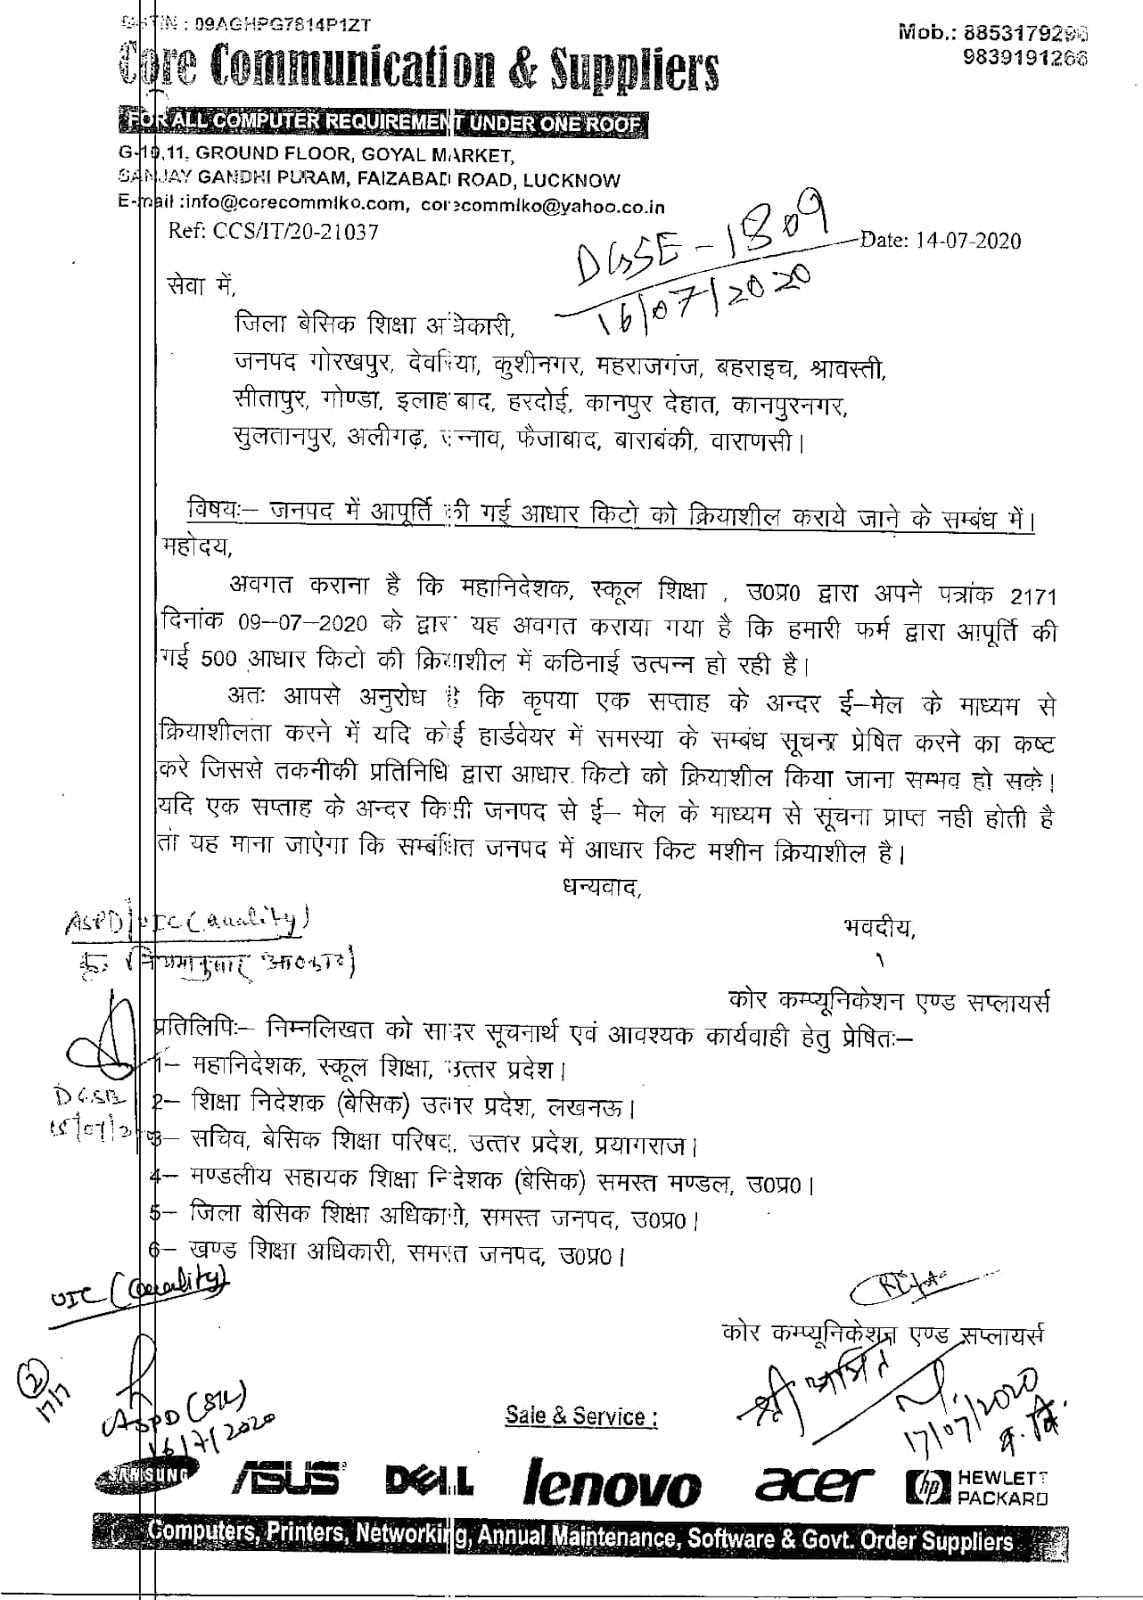 GSTIN : 09AGHPG7814P1ZT
Mob.: 8853179296
9839191266
Core Communication & Suppliers
FOR ALL COMPUTER REQUIREMENT UNDER ONE ROOF
G-10,11, GROUND FLOOR, GOYAL MARKET,
SANJAY GANDHI PURAM, FAIZABAD ROAD, LUCKNOW
E-mail :info@corecommlko.com, corecommlko@yahoo.co.in
Ref: CCS/IT/20-21037
DGSE - 1809
Date: 14-07-2020
16/07/2020
सेवा में,
जिला बेसिक शिक्षा अधिकारी,
जनपद गोरखपुर, देवरिया, कुशीनगर, महराजगंज, बहराइच, श्रावस्ती,
सीतापुर, गोण्डा, इलाहाबाद, हरदोई, कानपुर देहात, कानपुरनगर,
सुलतानपुर, अलीगढ़, उन्नाव, फैजाबाद, बाराबंकी, वाराणसी।
विषयः– जनपद में आपूर्ति की गई आधार किटो को क्रियाशील कराये जाने के सम्बंध में।
महोदय,
अवगत कराना है कि महानिदेशक, स्कूल शिक्षा , उ0प्र0 द्वारा अपने पत्रांक 2171
दिनांक 09–07–2020 के द्वारा यह अवगत कराया गया है कि हमारी फर्म द्वारा आपूर्ति की
गई 500 आधार किटो की क्रियाशील में कठिनाई उत्पन्न हो रही है।
अतः आपसे अनुरोध है कि कृपया एक सप्ताह के अन्दर ई–मेल के माध्यम से
क्रियाशीलता करने में यदि कोई हार्डवेयर में समस्या के सम्बंध सूचना प्रेषित करने का कष्ट
करे जिससे तकनीकी प्रतिनिधि द्वारा आधार किटो को क्रियाशील किया जाना सम्भव हो सके।
यदि एक सप्ताह के अन्दर किसी जनपद से ई– मेल के माध्यम से सूचना प्राप्त नही होती है
तो यह माना जाऐगा कि सम्बंधित जनपद में आधार किट मशीन क्रियाशील है।
धन्यवाद,
ASPD/UIC (Quality)
भवदीय,
कृ. नियमानुसार
कोर कम्प्यूनिकेशन एण्ड सप्लायर्स
प्रतिलिपिः– निम्नलिखत को सादर सूचनार्थ एवं आवश्यक कार्यवाही हेतु प्रेषितः–
1– महानिदेशक, स्कूल शिक्षा, उत्तर प्रदेश।
DGSE
2– शिक्षा निदेशक (बेसिक) उत्तर प्रदेश, लखनऊ।
3– सचिव, बेसिक शिक्षा परिषद, उत्तर प्रदेश, प्रयागराज।
4– मण्डलीय सहायक शिक्षा निदेशक (बेसिक) समस्त मण्डल, उ0प्र0।
5– जिला बेसिक शिक्षा अधिकारी, समस्त जनपद, उ0प्र0।
6– खण्ड शिक्षा अधिकारी, समस्त जनपद, उ0प्र0।
UIC (Quality)
कोर कम्प्यूनिकेशन एण्ड सप्लायर्स
2
17/7
ASPD
16/7/2020
श्री
17/07/2020
Sale & Service :
SAMSUNG ASUS DELL lenovo acer hp HEWLETT
PACKARD
Computers, Printers, Networking, Annual Maintenance, Software & Govt. Order Suppliers